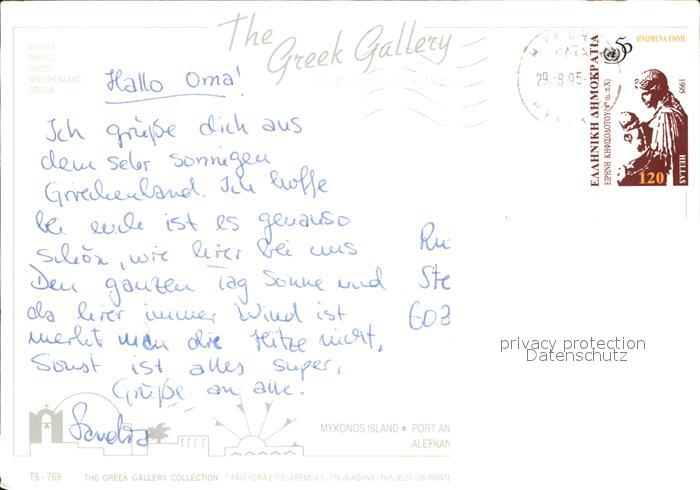 The Greek Gallery
ΕΛΛΑΔΑ
GREECE
GRECE
GRIECHENLAND
GRECIA
Hallo Oma!
Ich grüße dich aus
dem sehr sonnigen
Griechenland. Ich hoffe
bei euch ist es genauso
schön, wie hier bei uns
Den ganzen Tag Sonne und
da hier immer Wind ist
merkt man die Hitze nicht.
Sonst ist alles super.
Grüße an alle.
Sandra
Ru
Ste
603
29.8.95
50
ΗΝΩΜΕΝΑ ΕΘΝΗ
1995
ΕΛΛΗΝΙΚΗ ΔΗΜΟΚΡΑΤΙΑ
ΕΙΡΗΝΗ ΚΗΦΙΣΟΔΟΤΟΥ (4ος αι. π.Χ)
HELLAS
120
privacy protection
Datenschutz
MYKONOS ISLAND • PORT AN
ALEFKAN
T5 - 769
THE GREEK GALLERY COLLECTION